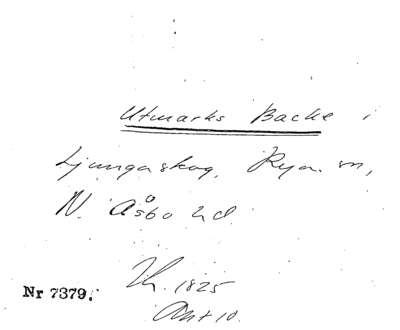 Utmarks Backe i
Ljungaskog, Rya sn,
N. Åsbo hd.
Th. 1825
Nr 7379.
Ant 10.